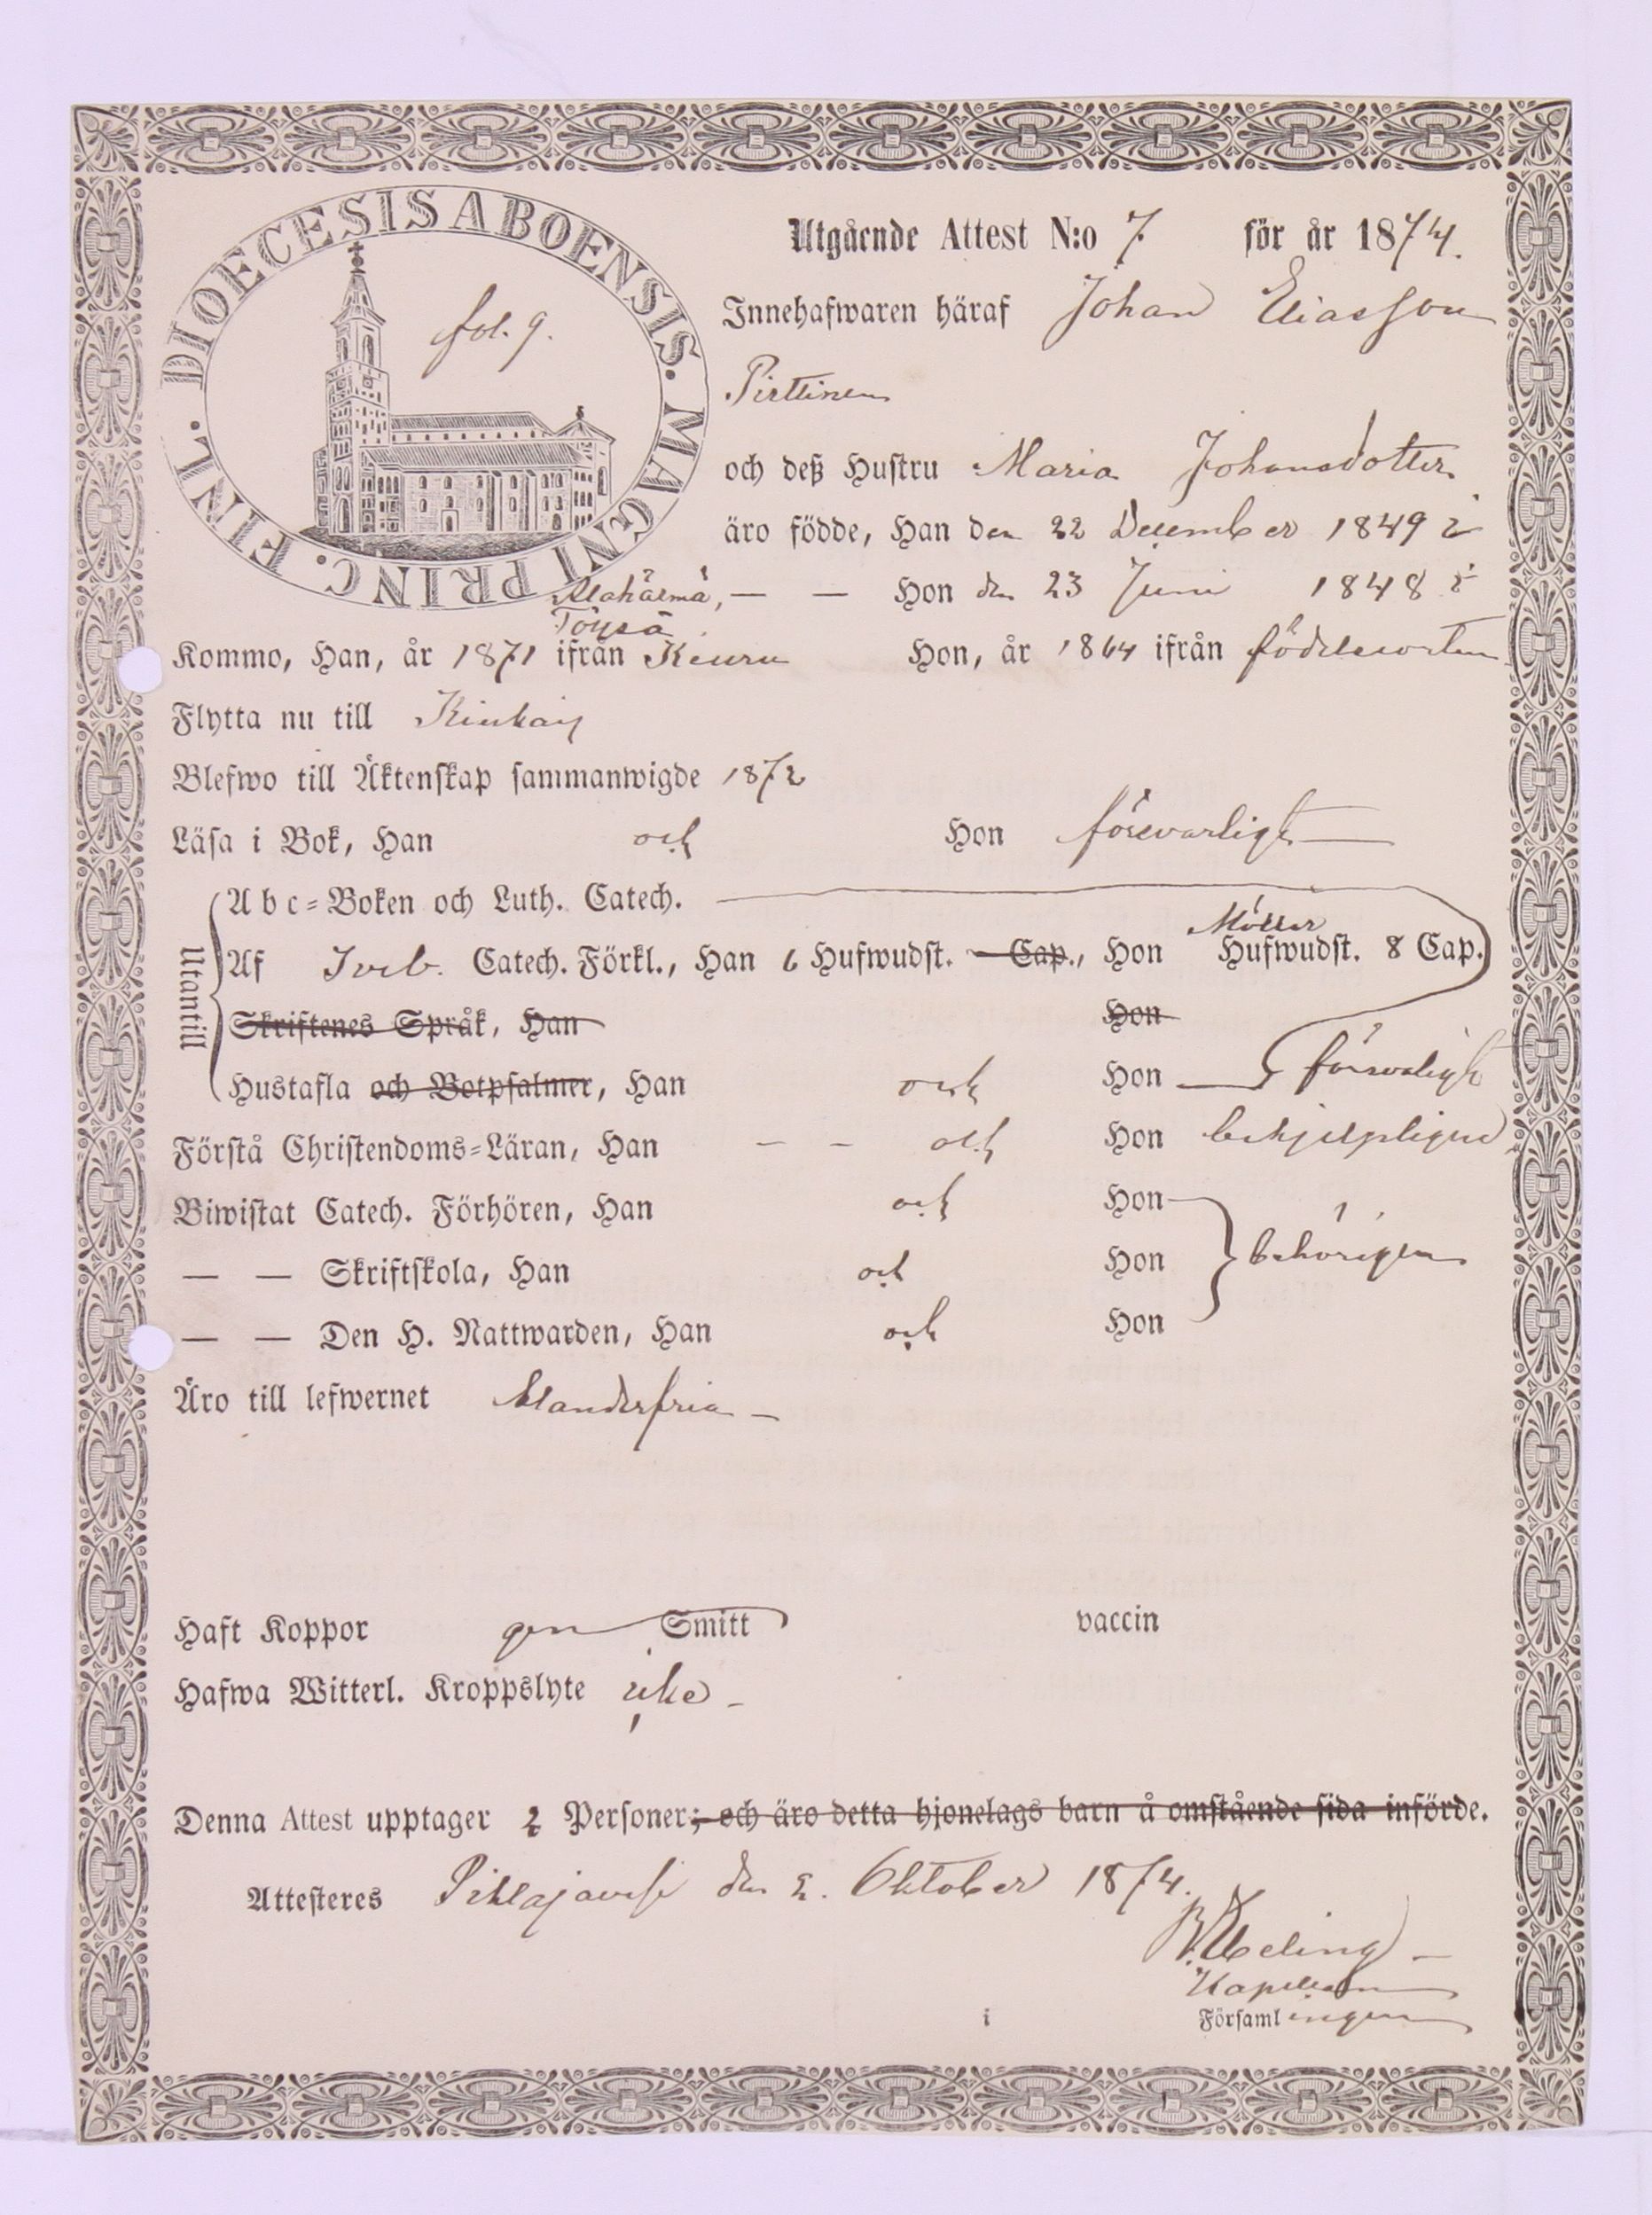 DIOECESIS ABOENSIS. MAGNI PRINC. FINL.
fol. 9.
Utgående Attest N:o 7 för år 1874.
Innehafwaren häraf Johan Eliasson
Pirttinen
och deß Hustru Maria Johansdotter
äro födde, Han den 22 December 1849 i
Alahärmä, — — Hon den 23 Juni 1848 i
Töysä
Kommo, Han, år 1871 ifrån Keuru Hon, år 1864 ifrån födelseorten
Flytta nu till
Blefwo till Äktenskap sammanwigde 1872
Läsa i Bok, Han och Hon försvarligt —
Utantill
Abc-Boken och Luth. Catech.
Möller
Af Sveb. Catech. Förkl., Han 6 Hufwudst. — Cap., Hon Hufwudst. 8 Cap.
Skriftenes Språk, Han Hon
Hustafla och Botpsalmer, Han och Hon — försvarligt
Förstå Christendoms-Läran, Han — — och Hon behjelpligen
Biwistat Catech. Förhören, Han och Hon
— — Skriftskola, Han och Hon behörigen
— — Den H. Nattwarden, Han och Hon
Äro till lefwernet klanderfria —
Haft Koppor gen Smitt vaccin
Hafwa Witterl. Kroppslyte icke —
Denna Attest upptager 2 Personer; och äro detta hjonelags barn å omstående sida införde.
Attesteres Pihlajavesi den 2. Oktober 1874.
Kapellan
i Församlingen